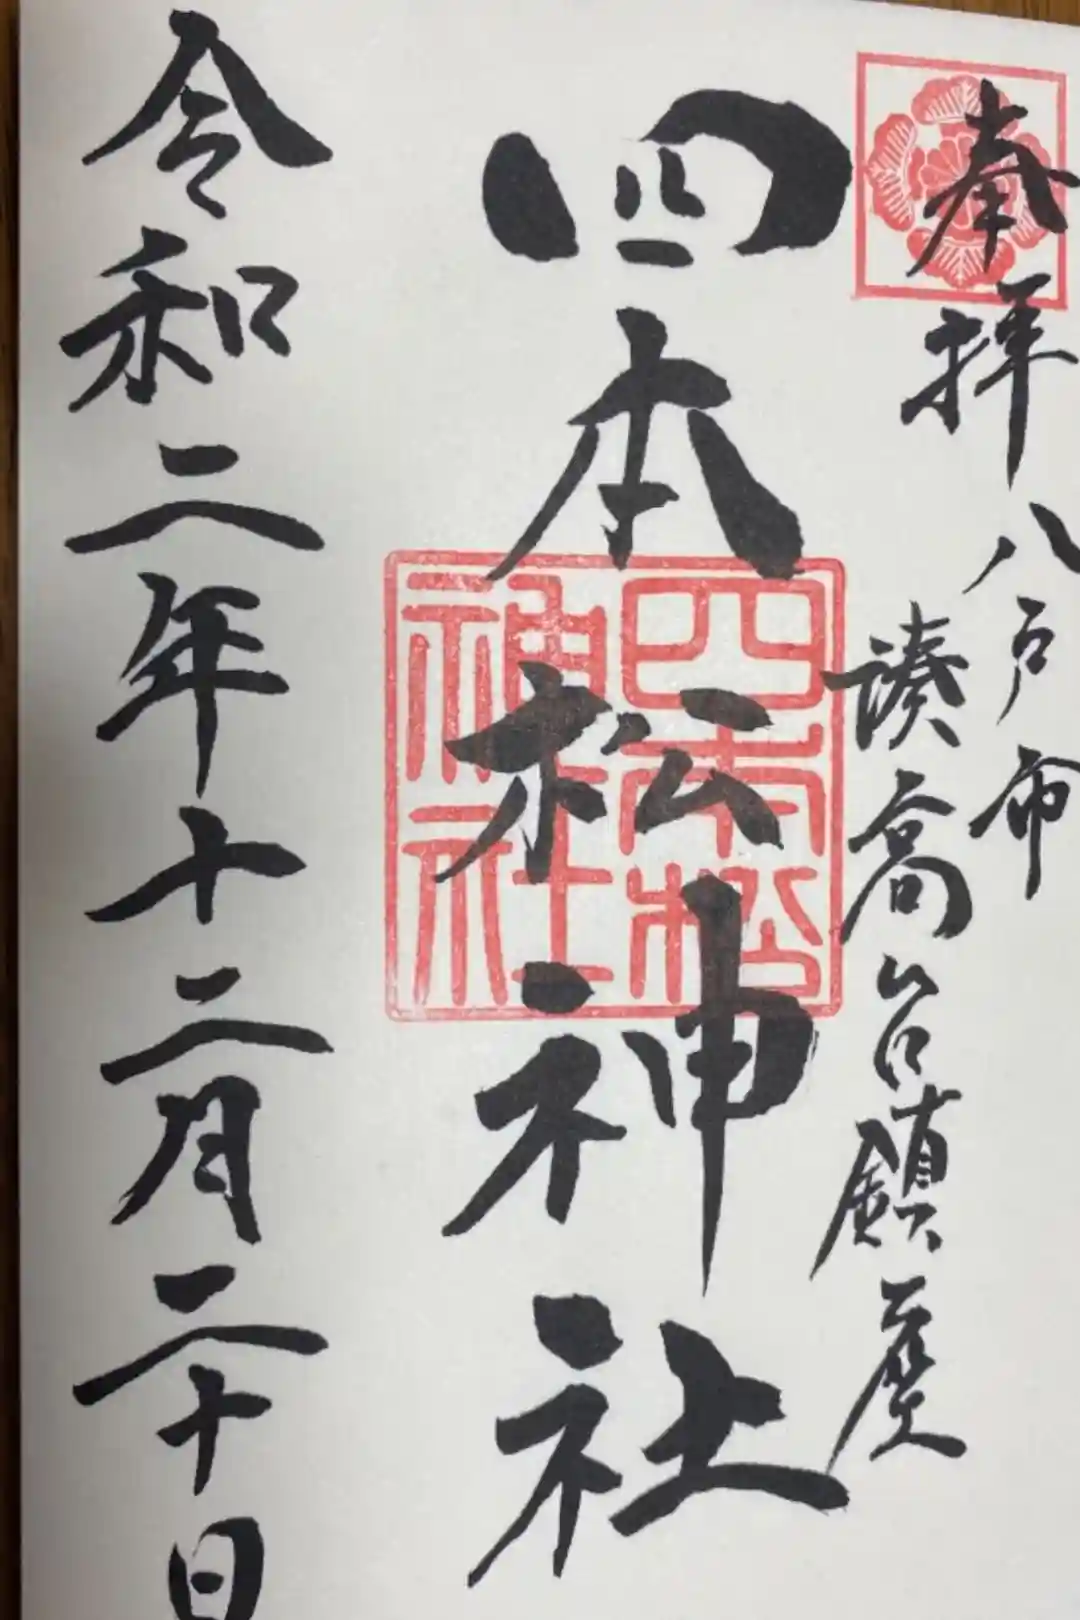 奉拝
八戸市
湊高台鎮座
四本松神社
四本松
神社
令和二年十二月二十日